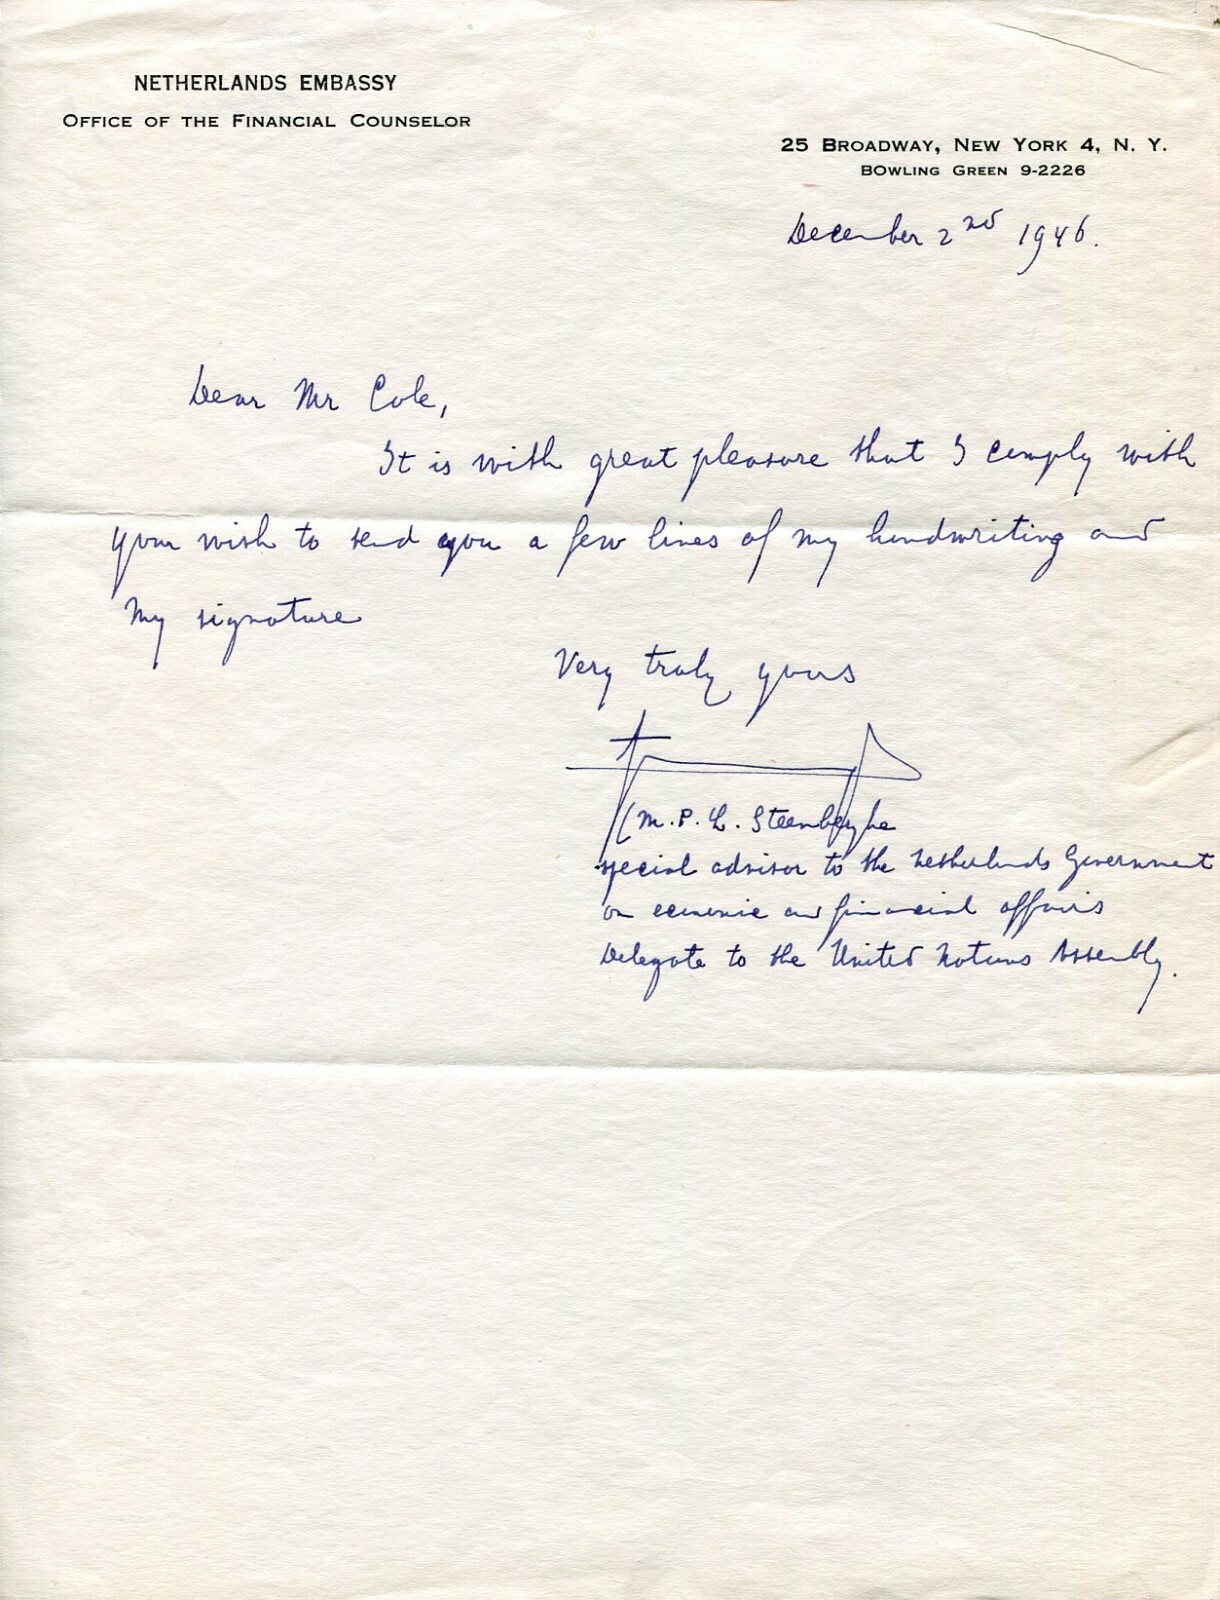 NETHERLANDS EMBASSY
OFFICE OF THE FINANCIAL COUNSELOR
25 BROADWAY, NEW YORK 4, N. Y.
BOWLING GREEN 9-2226
December 2nd 1946.
Dear Mr Cole,
It is with great pleasure that I comply with
your wish to send you a few lines of my handwriting and
my signature
Very truly yours
(M.P.L. Steenberghe
special advisor to the Netherlands Government
on economic and financial affairs
Delegate to the United Nations Assembly.